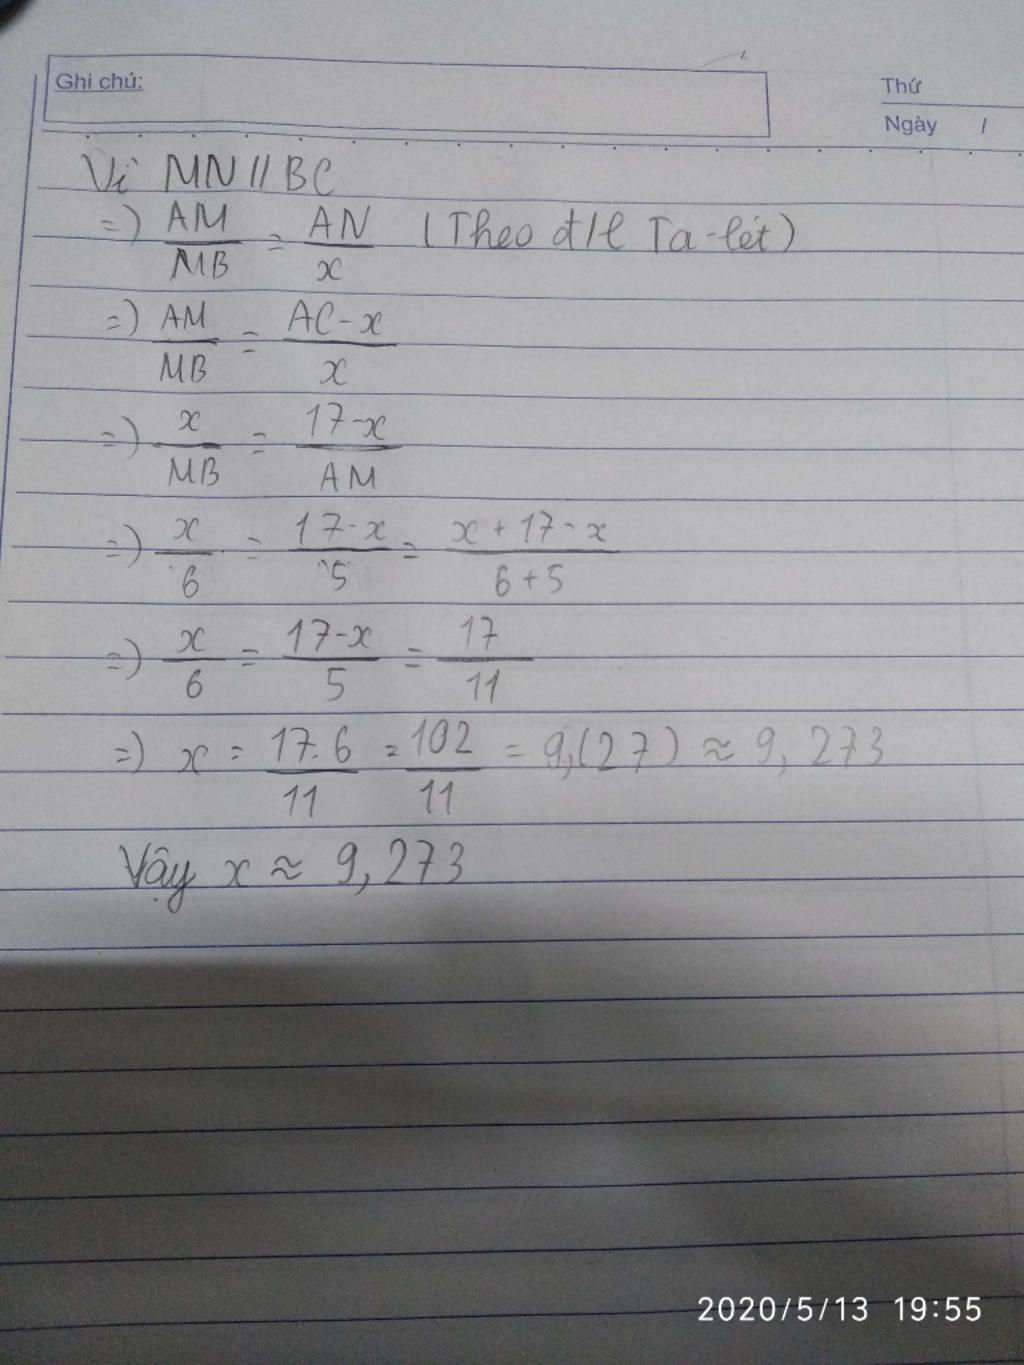 Ghi chú:
Thứ
Ngày /
Vì MN // BC
=) AM/MB = AN/x (Theo đ/l Ta-lét)
=) AM/MB = AC-x/x
=) x/MB = 17-x/AM
=) x/6 = 17-x/5 = x+17-x/6+5
=) x/6 = 17-x/5 = 17/11
=) x = 17.6/11 = 102/11 = 9,(27) ≈ 9,273
Vậy x ≈ 9,273
2020/5/13 19:55